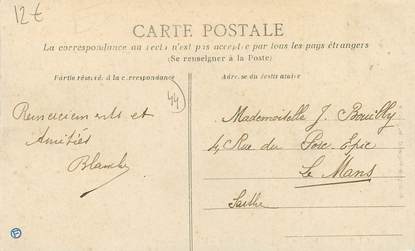 12€
CARTE POSTALE
La correspondance au recto n'est pas acceptée par tous les pays étrangers
(Se renseigner à la Poste)
Partie réservée à la correspondance
Adresse du destinataire
44
Mademoiselle J. Bouilly
Remerciements et
4, Rue du Porc Epic
Amitiés
Le Mans
Blanche
Sarthe